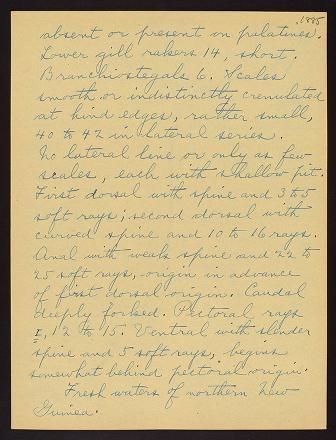 1885
absent or present on palatines.
Lower gill rakers 14, short.
Branchiostegals 6. Scales
smooth or indistinctly crenulated
at hind edges, rather small,
40 to 42 in lateral series.
No lateral line or only as few
scales, each with shallow pit.
First dorsal with spine and 3 to 5
soft rays; second dorsal with
curved spine and 10 to 16 rays.
Anal with weak spine and 22 to
25 soft rays, origin in advance
of first dorsal origin. Caudal
deeply forked. Pectoral rays
I, 12 to 15. Ventral with slender
spine and 5 soft rays, begins
somewhat behind pectoral origin.
Fresh waters of northern New
Guinea.